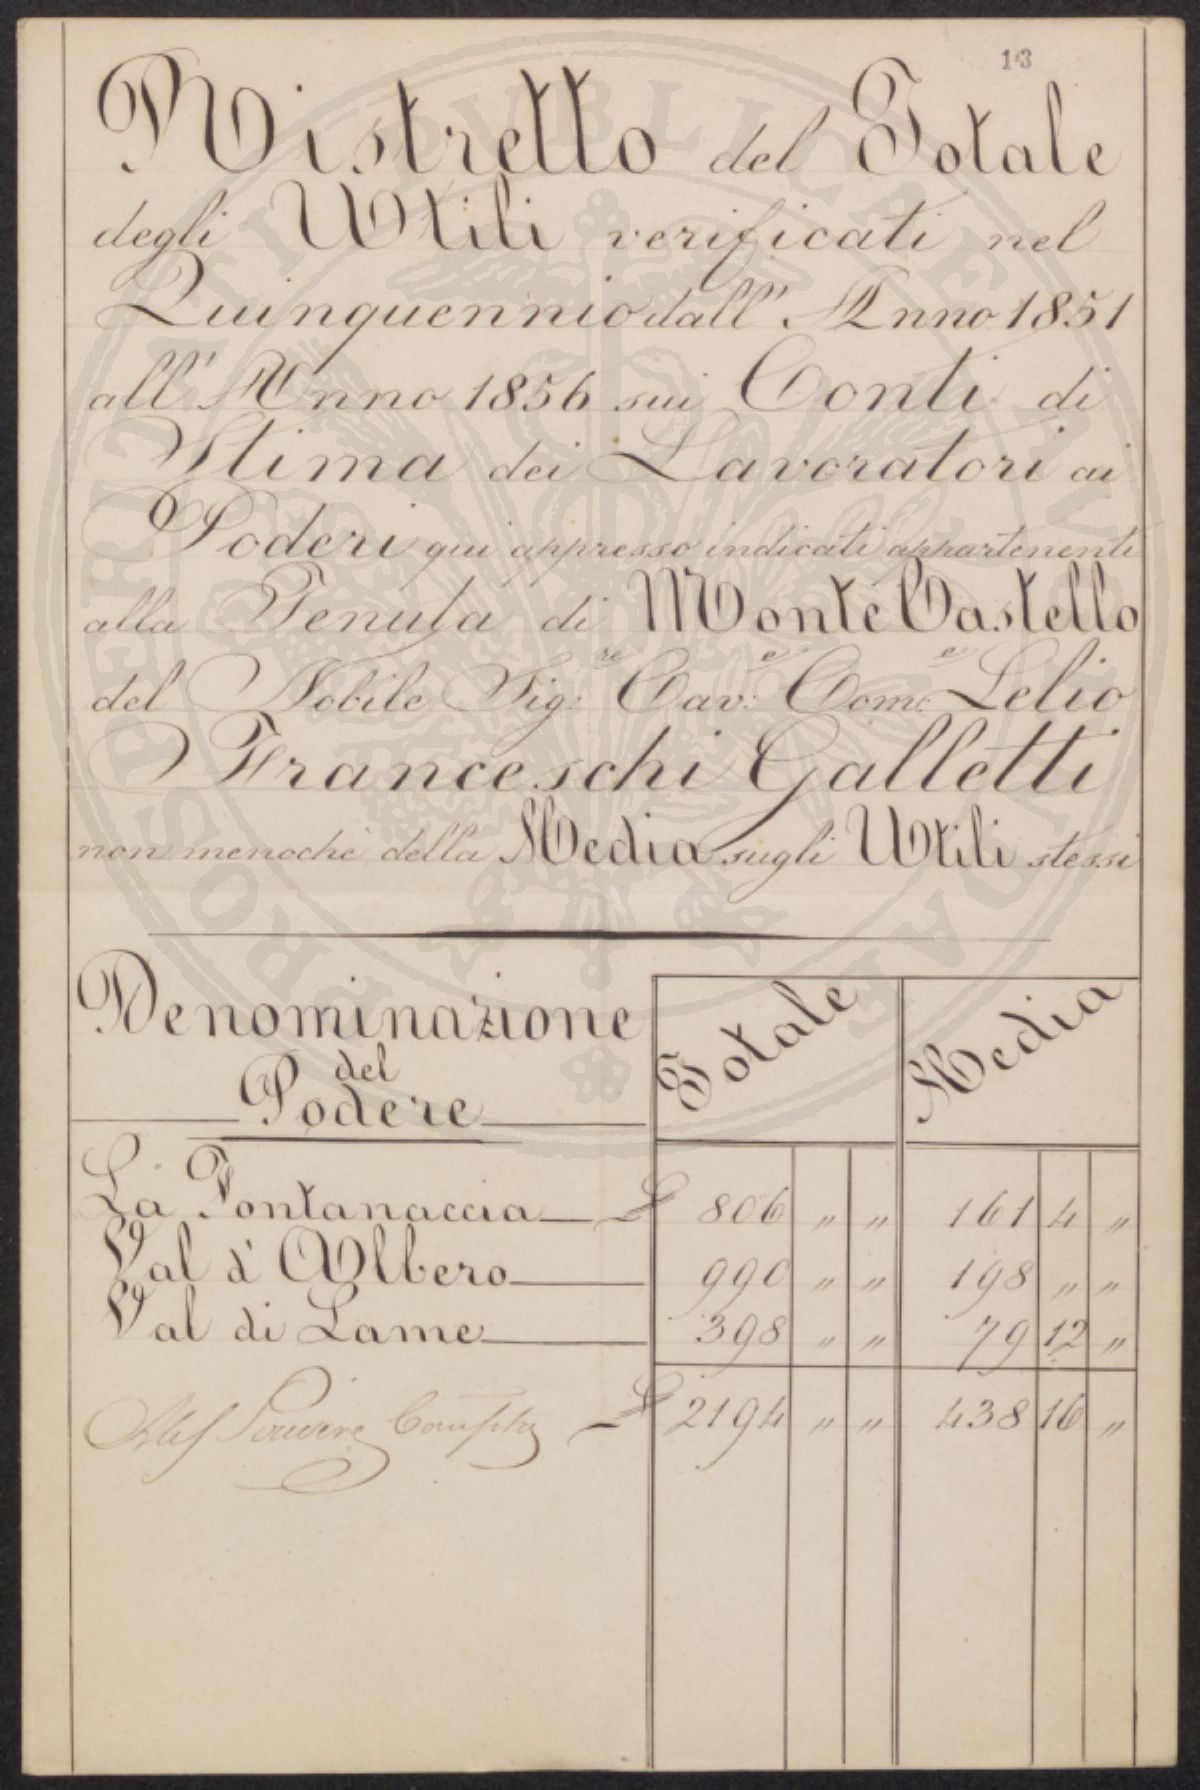 13
Ristretto del Totale
degli Utili verificati nel
Quinquennio dall' Anno 1851
all' Anno 1856 sui Conti di
Stima dei Lavoratori ai
Poderi qui appresso indicati appartenenti
alla Tenuta di Monte Castello
del Nobile Sig:re Cav:e Com:e Lelio
Franceschi Galletti
non menochè della Media sugli Utili stessi
Denominazione
del
Podere
Totale
Media
La Fontanaccia £ 806 " " 161 4 "
Val d'Albero 990 " " 198 " "
Val di Lame 398 " " 79 12 "
£ 2194 " " 438 16 "